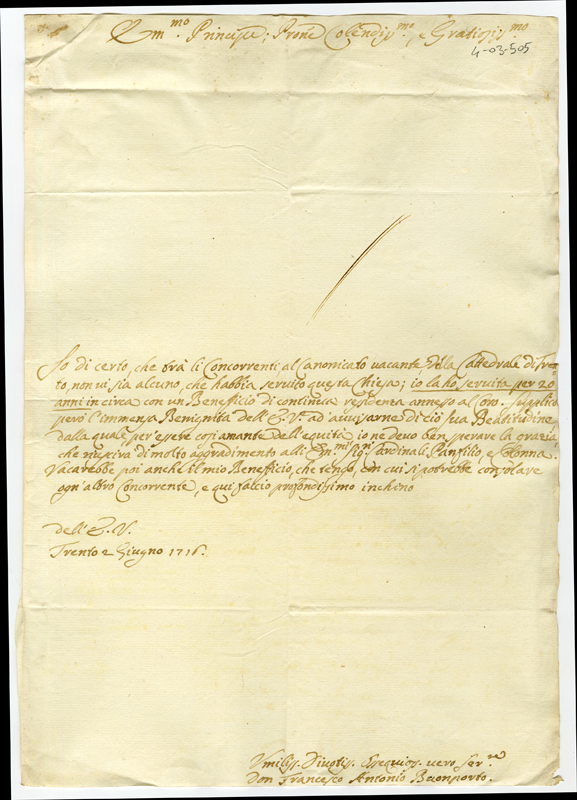 Em.mo Principe, Prone Colendiss.mo, e Gratiosiss.mo
4-03-505
So di certo, che trà li Concorrenti al Canonicato vacante della Cattedrale di Tren
to, non vi sia alcuno, che habbia servito questa Chiesa; io la hò servita per 20
anni in circa con un Benefficio di continua residenza annesso al Coro. Supplico
però l'immensa Benignità dell'E.V. ad' avvisarne di ciò sua Beatitudine
dalla quale per essere così amante dell'equità io ne devo ben sperare la grazia
che riuscirà di molto aggradimento alli Em.mi Sig.ri Cardinali Panfilio, e Colonna.
Vacarebbe poi anche il mio Benefficio, che tengo, con cui si potrebbe consolare
ogn'altro Concorrente, e qui faccio profondissimo inchino
dell'E.V.
Trento 2 Giugno 1716.
Umiliss. Divotis. Osequios. vero Ser.re
Don Francesco Antonio Buonporto.